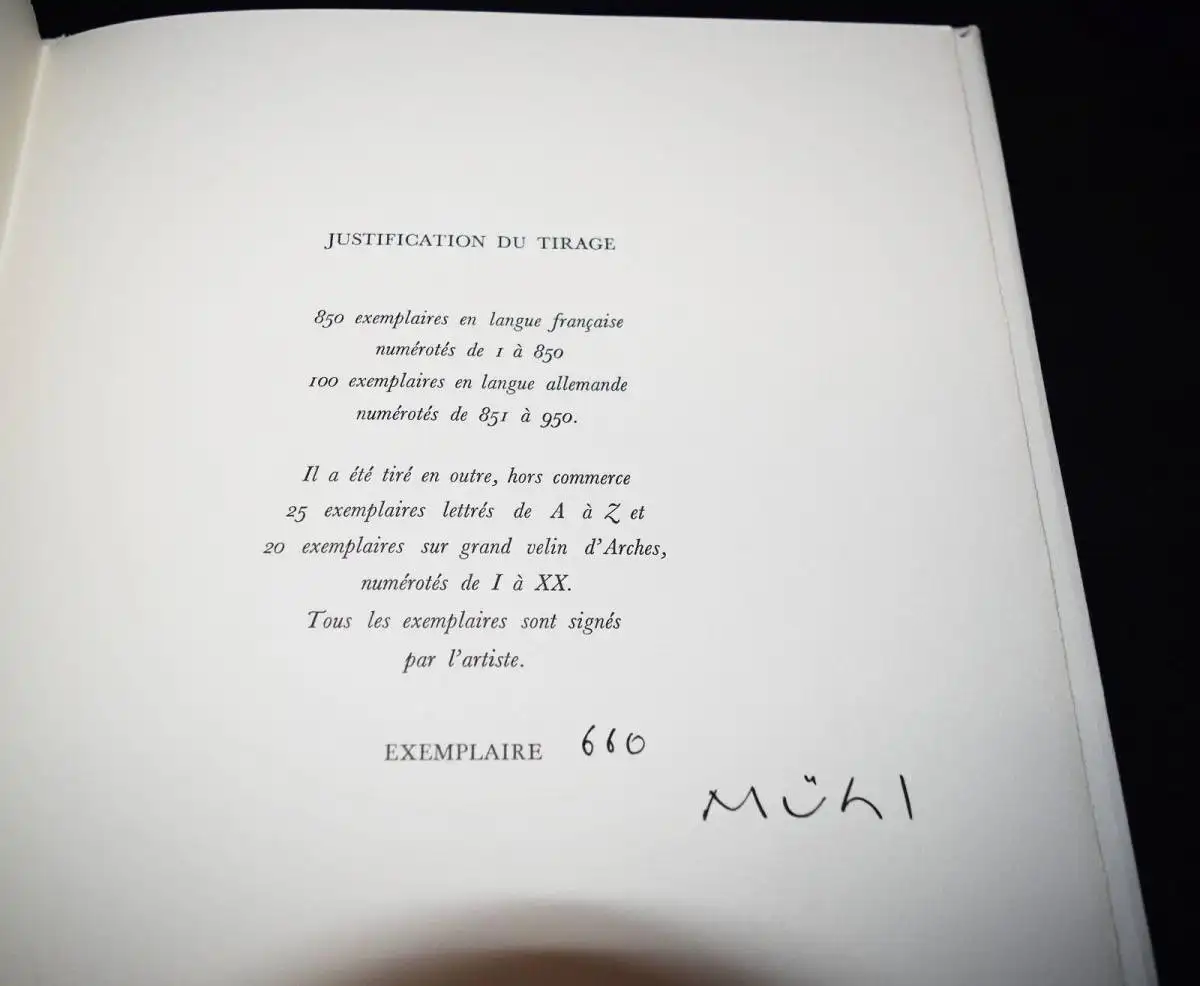 JUSTIFICATION DU TIRAGE
850 exemplaires en langue française
numérotés de 1 à 850
100 exemplaires en langue allemande
numérotés de 851 à 950.
Il a été tiré en outre, hors commerce
25 exemplaires lettrés de A à Z et
20 exemplaires sur grand velin d'Arches,
numérotés de I à XX.
Tous les exemplaires sont signés
par l'artiste.
EXEMPLAIRE 660
Mühl